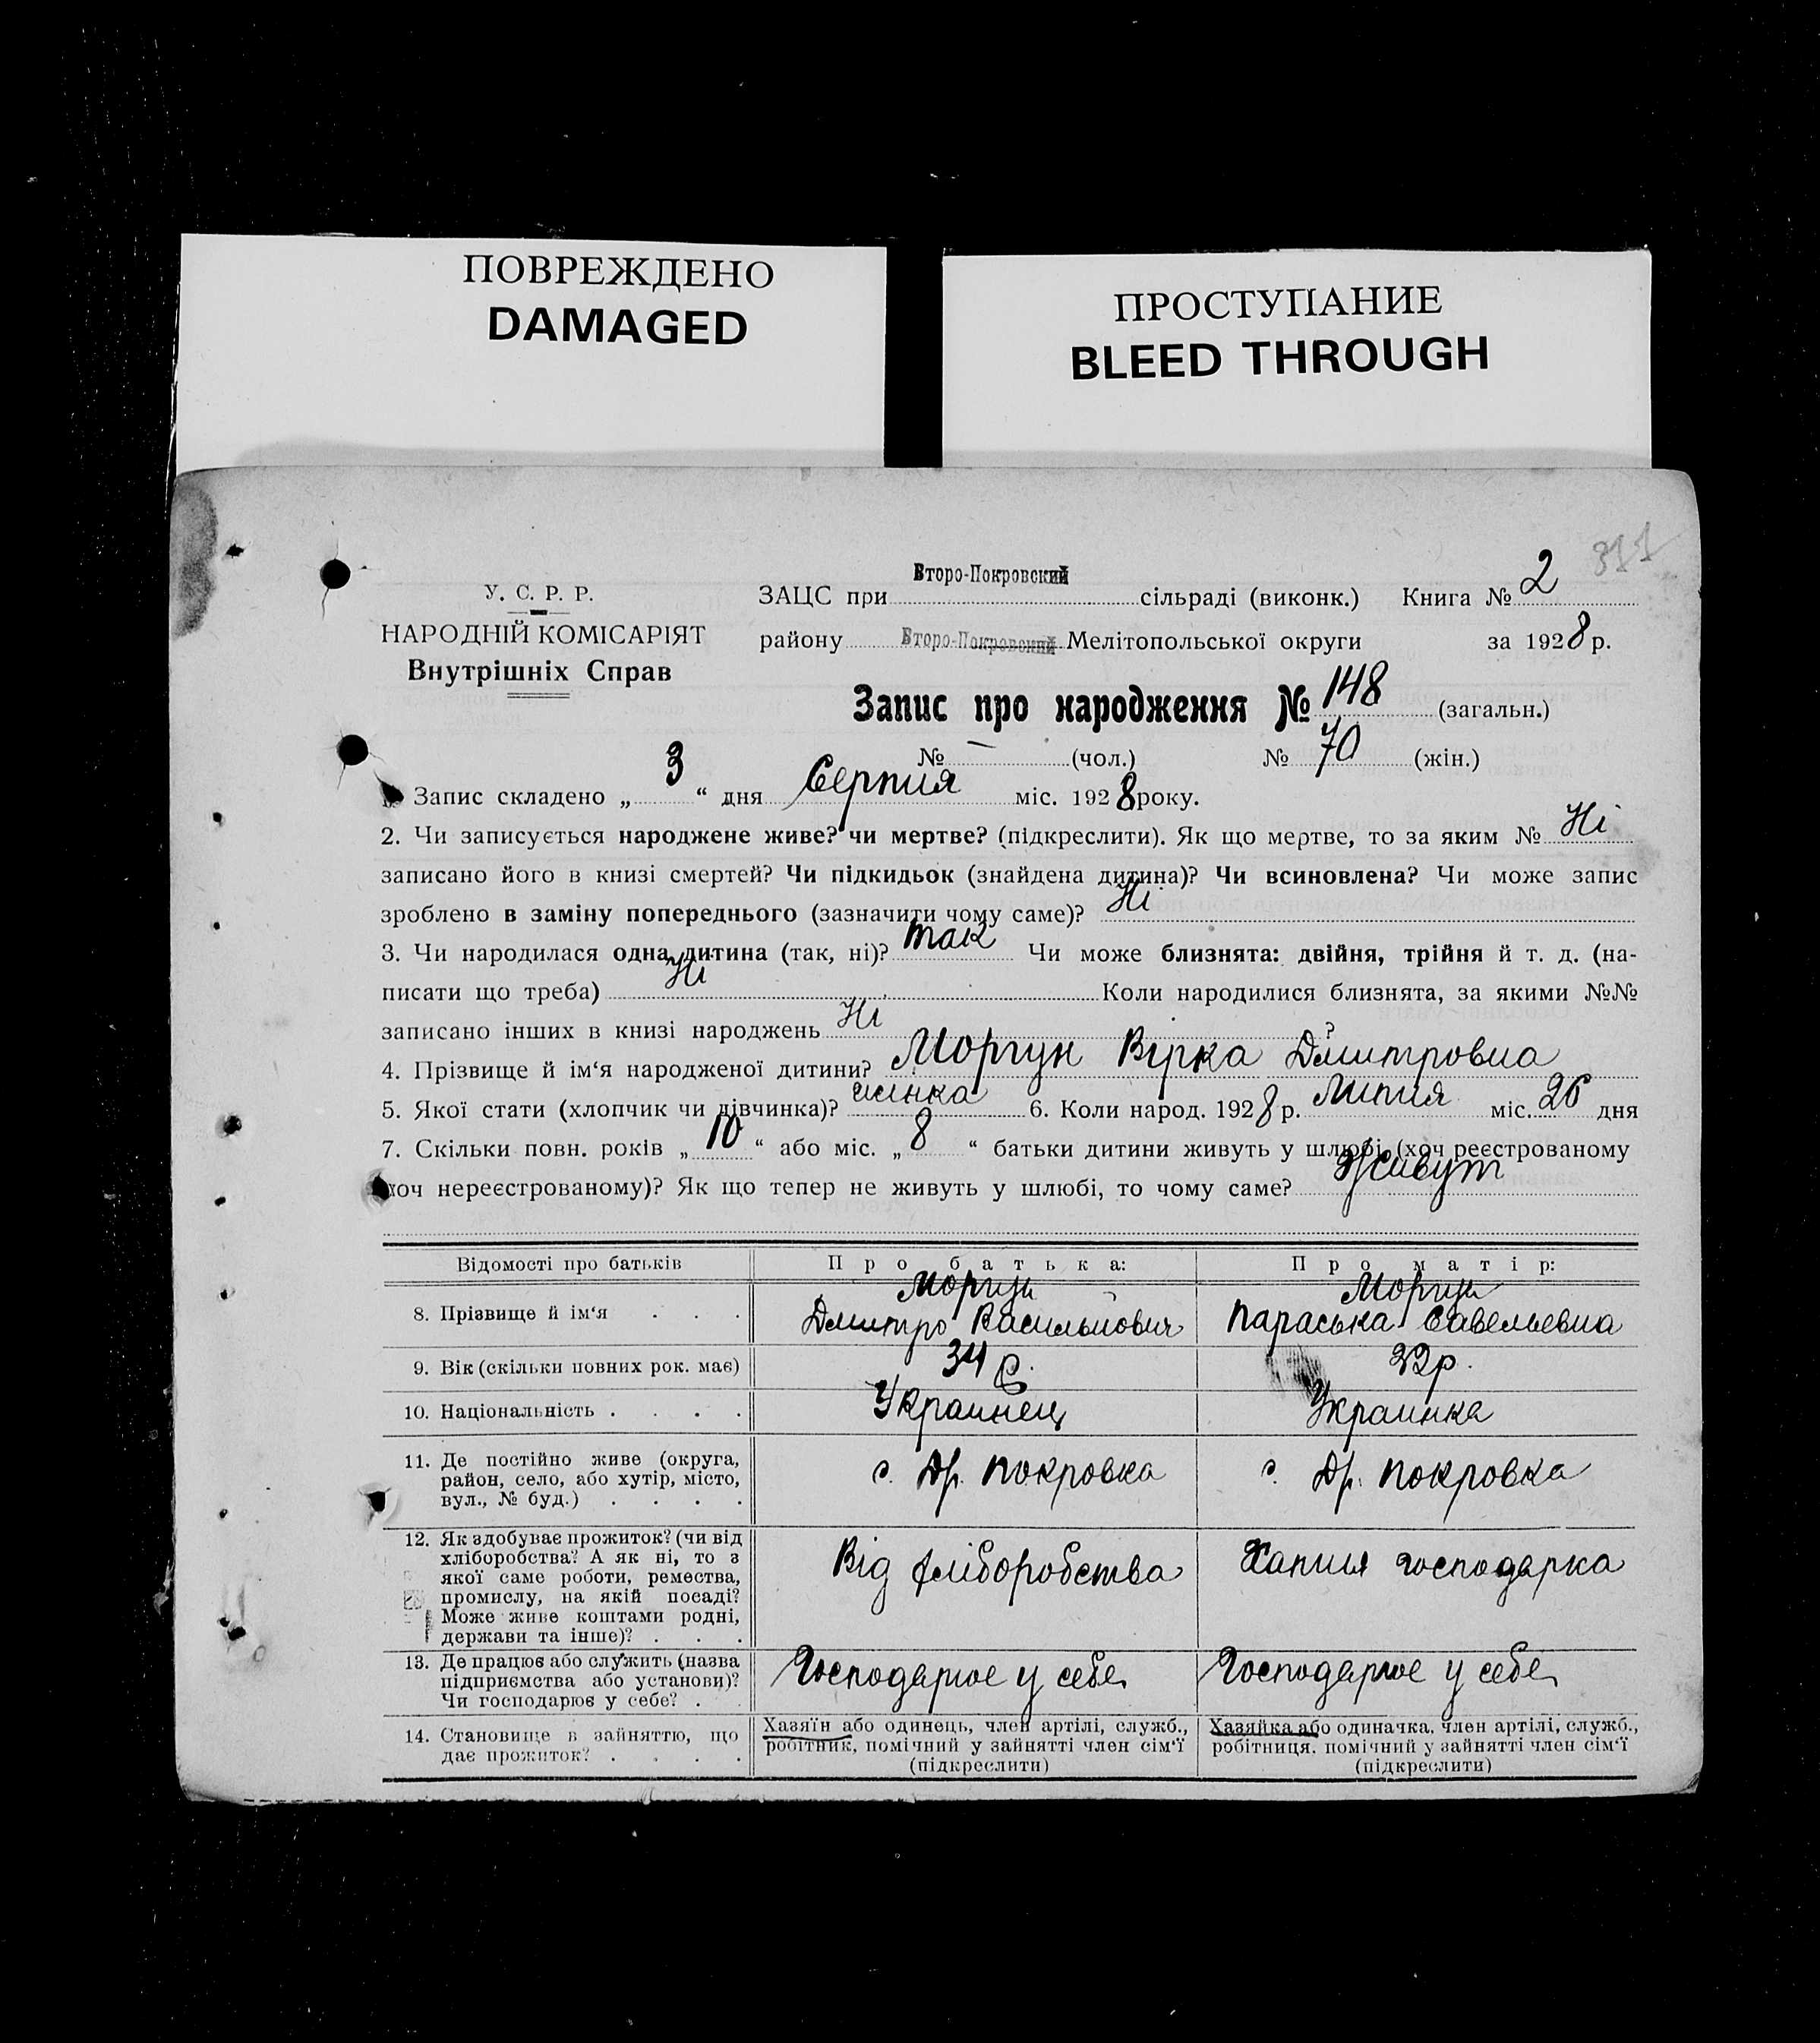 ПОВРЕЖДЕНО
DAMAGED
ПРОСТУПАНИЕ
BLEED THROUGH
311
У. С. Р. Р.
НАРОДНІЙ КОМІСАРІЯТ
Внутрішніх Справ
Второ-Покровский
ЗАЦС при сільраді (виконк.) Книга № 2
району Второ-Покровский Мелітопольської округи за 1928 р.
Запис про народження № 148 (загальн.)
№ — (чол.) № 70 (жін.)
1. Запис складено „ 3 “ дня Серпня міс. 1928 року.
2. Чи записується народжене живе? чи мертве? (підкреслити). Як що мертве, то за яким № Ні
записано його в книзі смертей? Чи підкидьок (знайдена дитина)? Чи всиновлена? Чи може запис
зроблено в заміну попереднього (зазначити чому саме)? Ні
3. Чи народилася одна дитина (так, ні)? так Чи може близнята: двійня, трійня й т. д. (на-
писати що треба) Ні Коли народилися близнята, за якими №№
записано інших в книзі народжень Ні ?
4. Прізвище й ім‘я народженої дитини? Моргун Вірка Дмитровна
5. Якої стати (хлопчик чи дівчинка)? 6. Коли народ. 1928 р. Липня міс. 26 дня
7. Скільки повн. років „ 10 “ або міс. „ 8 “ батьки дитини живуть у шлюбі (хоч реєстрованому
хоч нереєстрованому)? Як що тепер не живуть у шлюбі, то чому саме? Живут
Відомості про батьків
Про батька:
Про матір:
8. Прізвище й ім‘я . . .
Моргун
Дмитро Васильович
Моргун
Параська Савельевна
9. Вік (скільки повних рок. має)
34 р.
32 р.
10. Національність . . . .
Украинец
Украинка
11. Де постійно живе (округа,
район, село, або хутір, місто,
вул., № буд.) . . . .
с. Др. Покровка
с. Др. Покровка
12. Як здобуває прожиток? (чи від
хліборобства? А як ні, то з
якої саме роботи, ремества,
промислу, на якій посаді?
Може живе коштами родні,
держави та інше)? . . .
Від хліборобства
Хатня господарка
13. Де працює або служить (назва
підприємства або установи)?
Чи господарює у себе? .
Господарює у себе
Господарює у себе
14. Становище в зайняттю, що
дає прожиток? . . . .
Хазяїн або одинець, член артілі, служб.,
робітник, помічний у зайнятті член сім‘ї
(підкреслити)
Хазяйка або одиначка, член артілі, служб.,
робітниця, помічний у зайнятті член сім‘ї
(підкреслити)